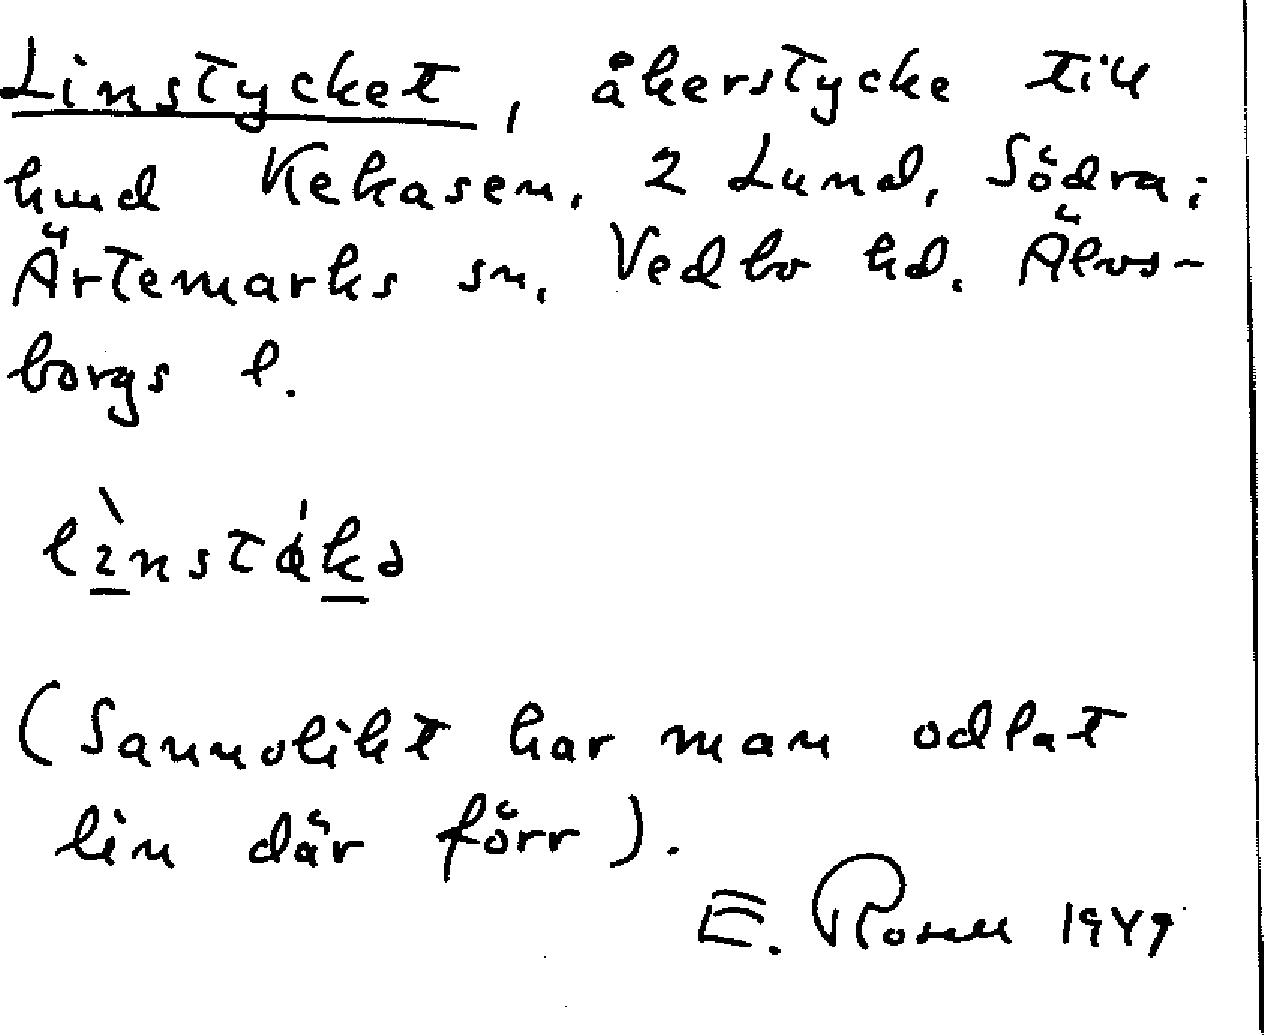 Linstycket, åkerstycke till
hmd Kekasen, 2 Lund, Södra;
Ärtemarks sn, Vedbo hd. Älvs-
borgs l.
(Sannolikt har man odlat
lin där förr).
E. Rosell 1947